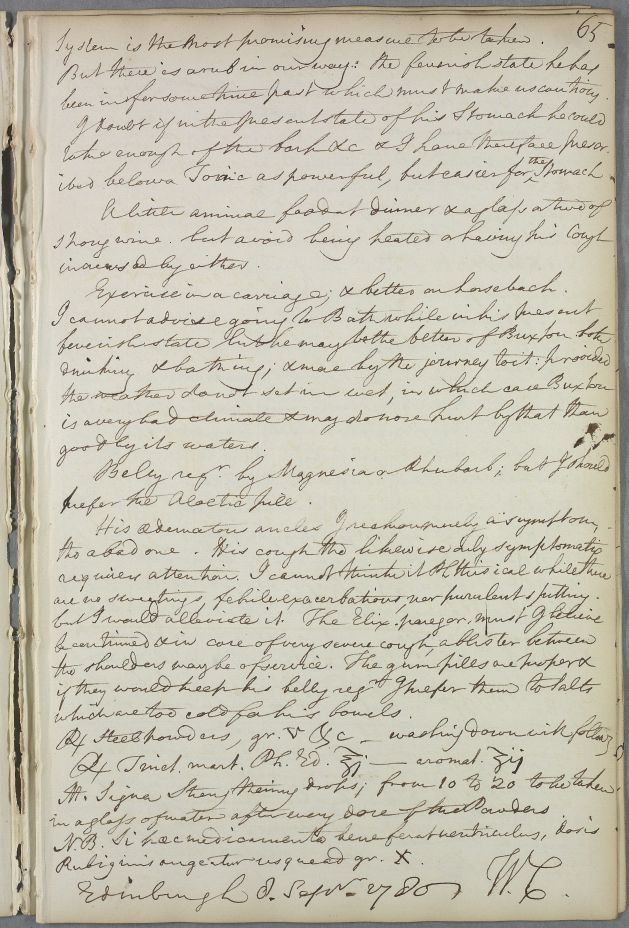 65
System is the most promising measure to be taken.
But there is a rub in our way: the feverish state he has
been in for some time past which must make us cautious.
I doubt if in the present state of his Stomach he could
take enough of the bark &c & I have therefore prescr-
ibed below a Tonic as powerful, but easier for the Stomach
A little animal food at dinner & a glass or two of
strong wine. but avoid being heated or having his Cough
increased by either.
Exercise in a carriage; & better on horseback.
I cannot advise going to Bath while in his present
feverish state but he may be the better of Buxton both
drinking & bathing; & more by the journey to it: provided
the weather do not set in wet, in which case Buxton
is a very bad climate & may do more hurt by that than
good by its waters.
Belly regr. by Magnesia or Rhubarb; but I should
prefer the Aloetic pill.
His œdematous ancles I reckon merely a symptom,
tho a bad one. His cough tho likewise only symptomatic
requires attention. I cannot think it Phthisical while there
are no sweatings, febrile exacerbations, nor purulent spitting.
but I would alleviate it. The Elix. paregor. must I believe
be continued & in case of very severe cough, a blister between
the shoulders may be of service. The gum pills are proper &
if they would keep his belly regr. I prefer them to salts
which are too cold for his bowels.
℞ Steel powders, gr. v &c — washing down with follow.g
℞ Tinct. mart. Ph. Ed. ℥j — aromat. ʒij
M. Signa Strengthening drops; from 10 to 20 to be taken
in a glass of water after every dose of the Powders
NB. Si hæc medicamenta bene ferat ventriculus, dosis
Rubiginis augetur usque ad gr. X.
Edinburgh 8. Sepr. 1780 W.C.